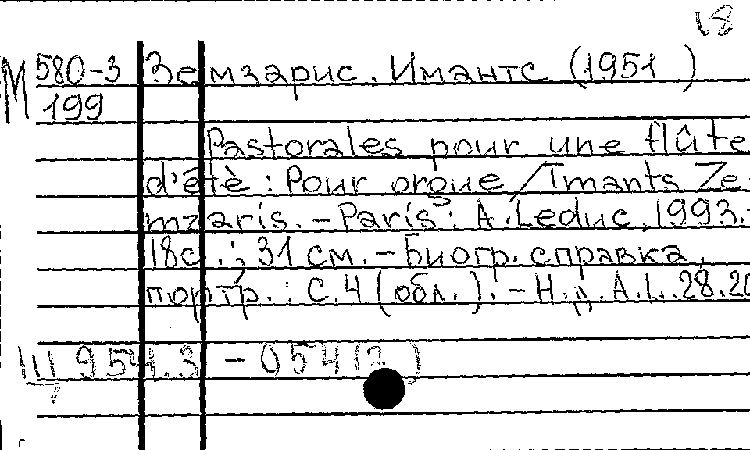 18
М 580-3 Земзарис. Имантс (1951 )
199
Pastorales pour une flûte
d'étè : Pour orgue / Imants Ze-
mzaris. - Paris : A. Leduc, 1993.-
18с. ; 31 см. - Биогр. справка,
портр. : С. 4 (обл.). - Н.д. A.L. 28.20
Щ 954.3 - 054